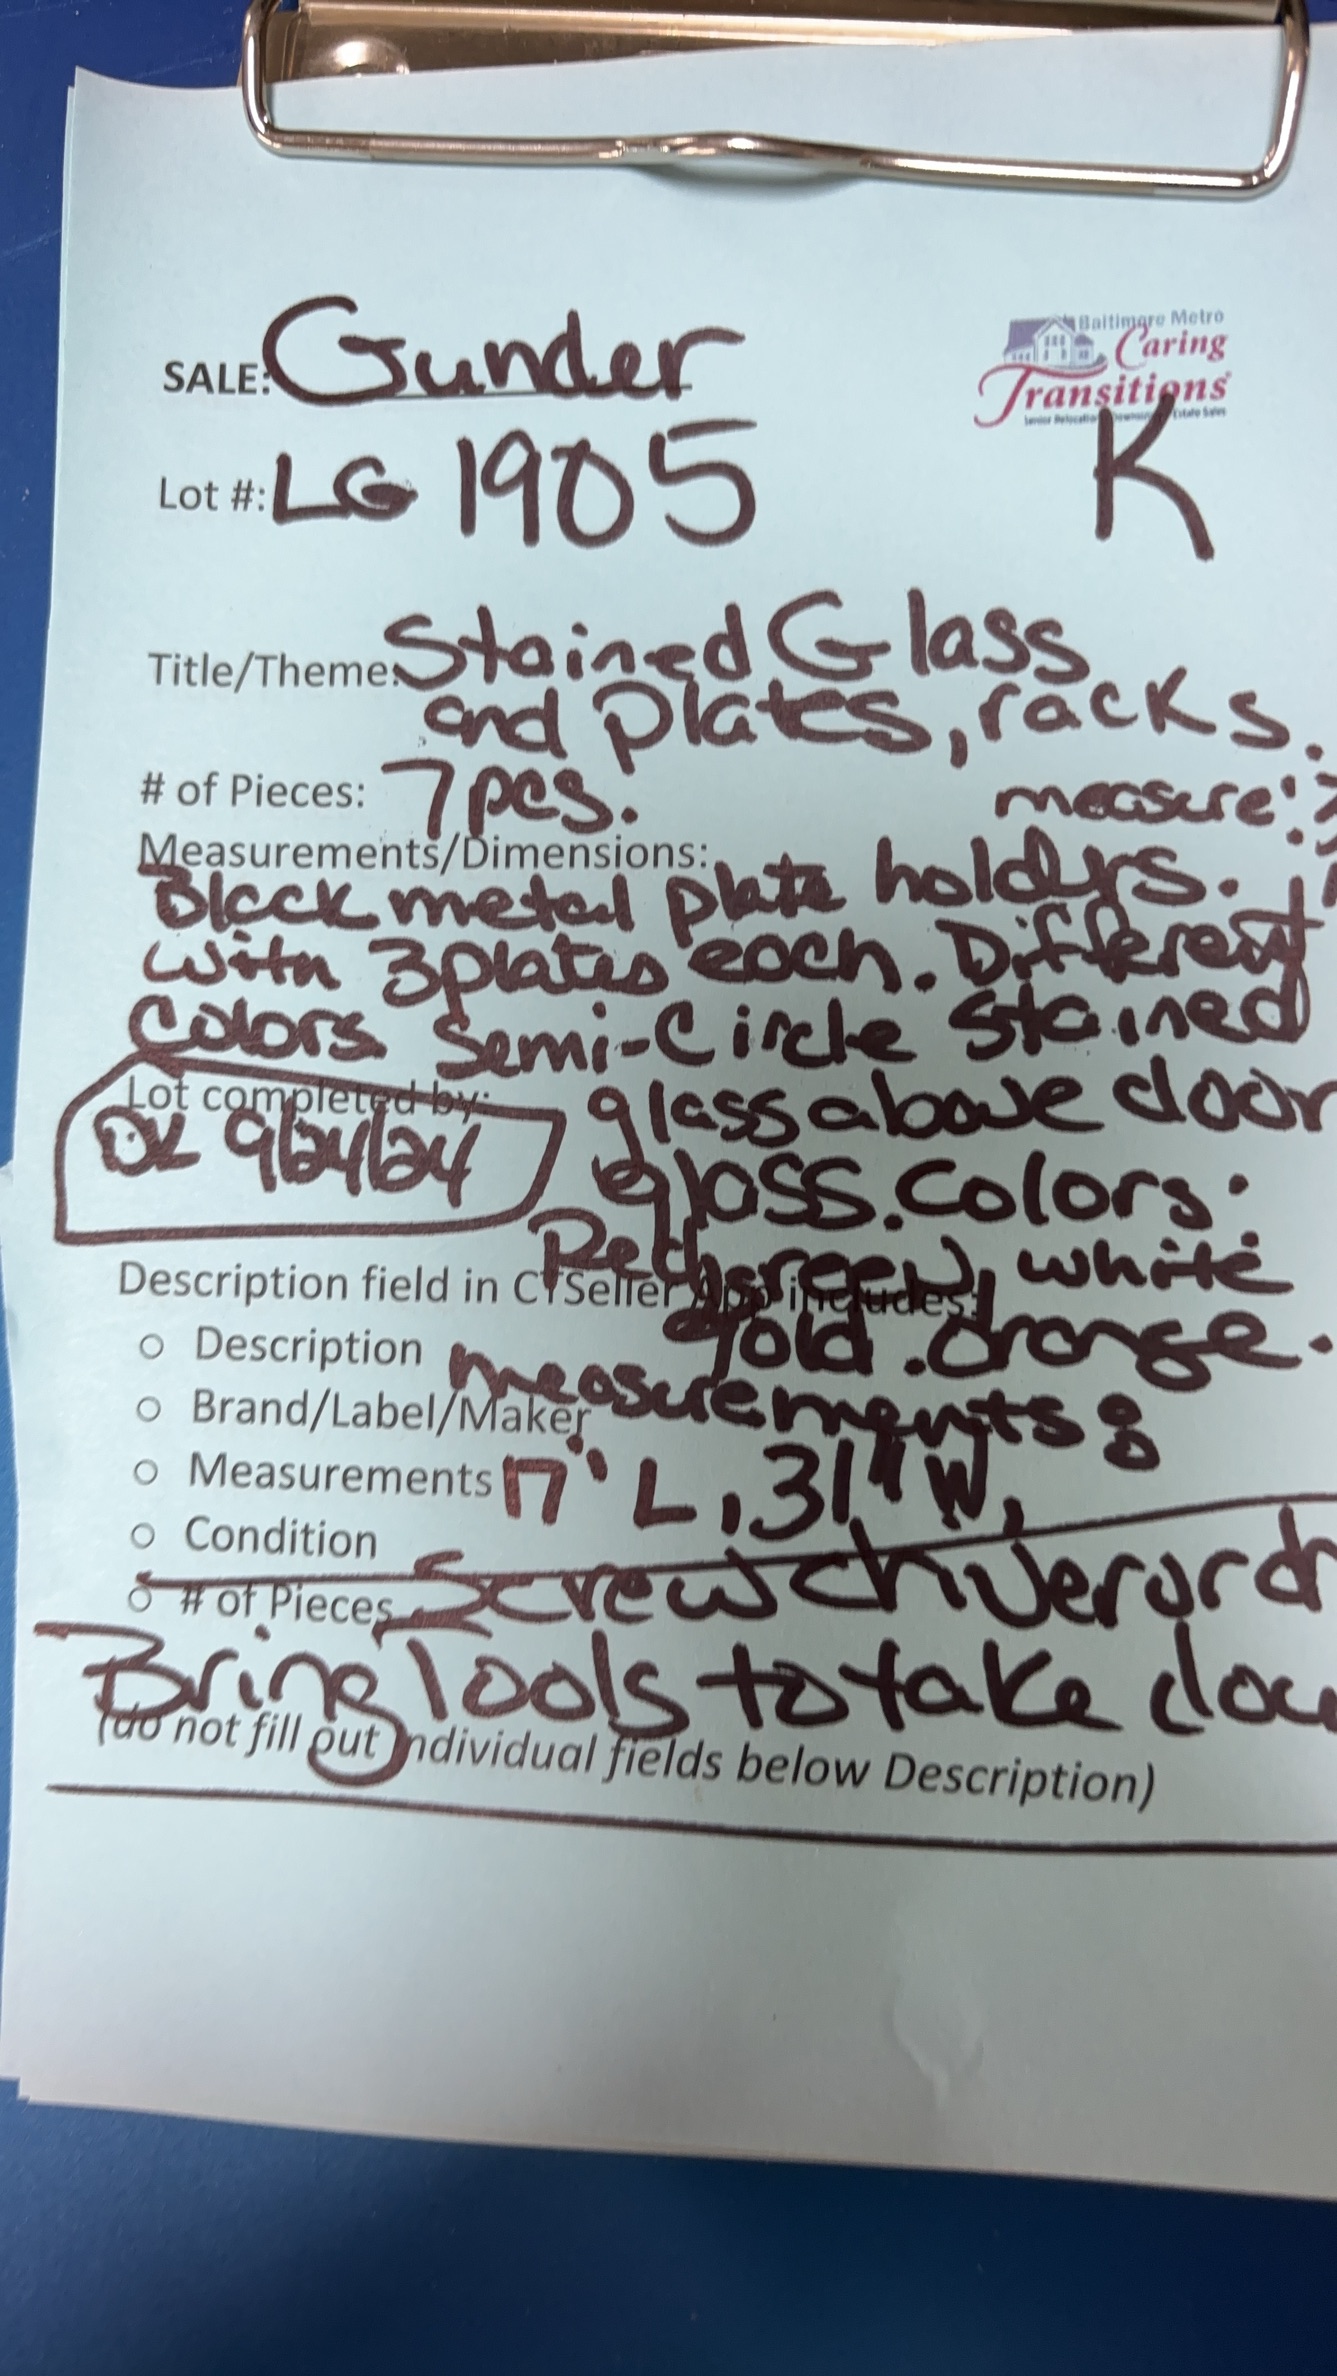 Baltimore Metro
Caring
Transitions
SALE: Gunder
Lot #: LG 1905
K
Title/Theme: Stained Glass
and Plates, racks.
# of Pieces: 7 pcs.
measure:
Measurements/Dimensions:
Black metal plate holders.
with 3 plates each. Different
Colors. Semi-Circle Stained
Lot completed by: glass above door
DK 9/24/24
glass. Colors:
Red, green, white
Description field in CTSeller App includes:
gold. Orange.
○ Description
measurements:
○ Brand/Label/Maker
○ Measurements 17" L, 31" W,
○ Condition
○ # of Pieces Screwdriver or
Bring Tools to take
(do not fill out individual fields below Description)